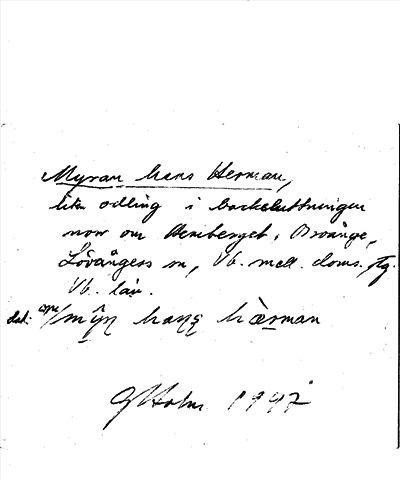 Myran hans Herman,
liten odling i backsluttningen
nov om Åkerberget, Broänge,
Lövångers sn, Vb. mell. doms. fög.
Vb. län.
dial:
G Holm 1947